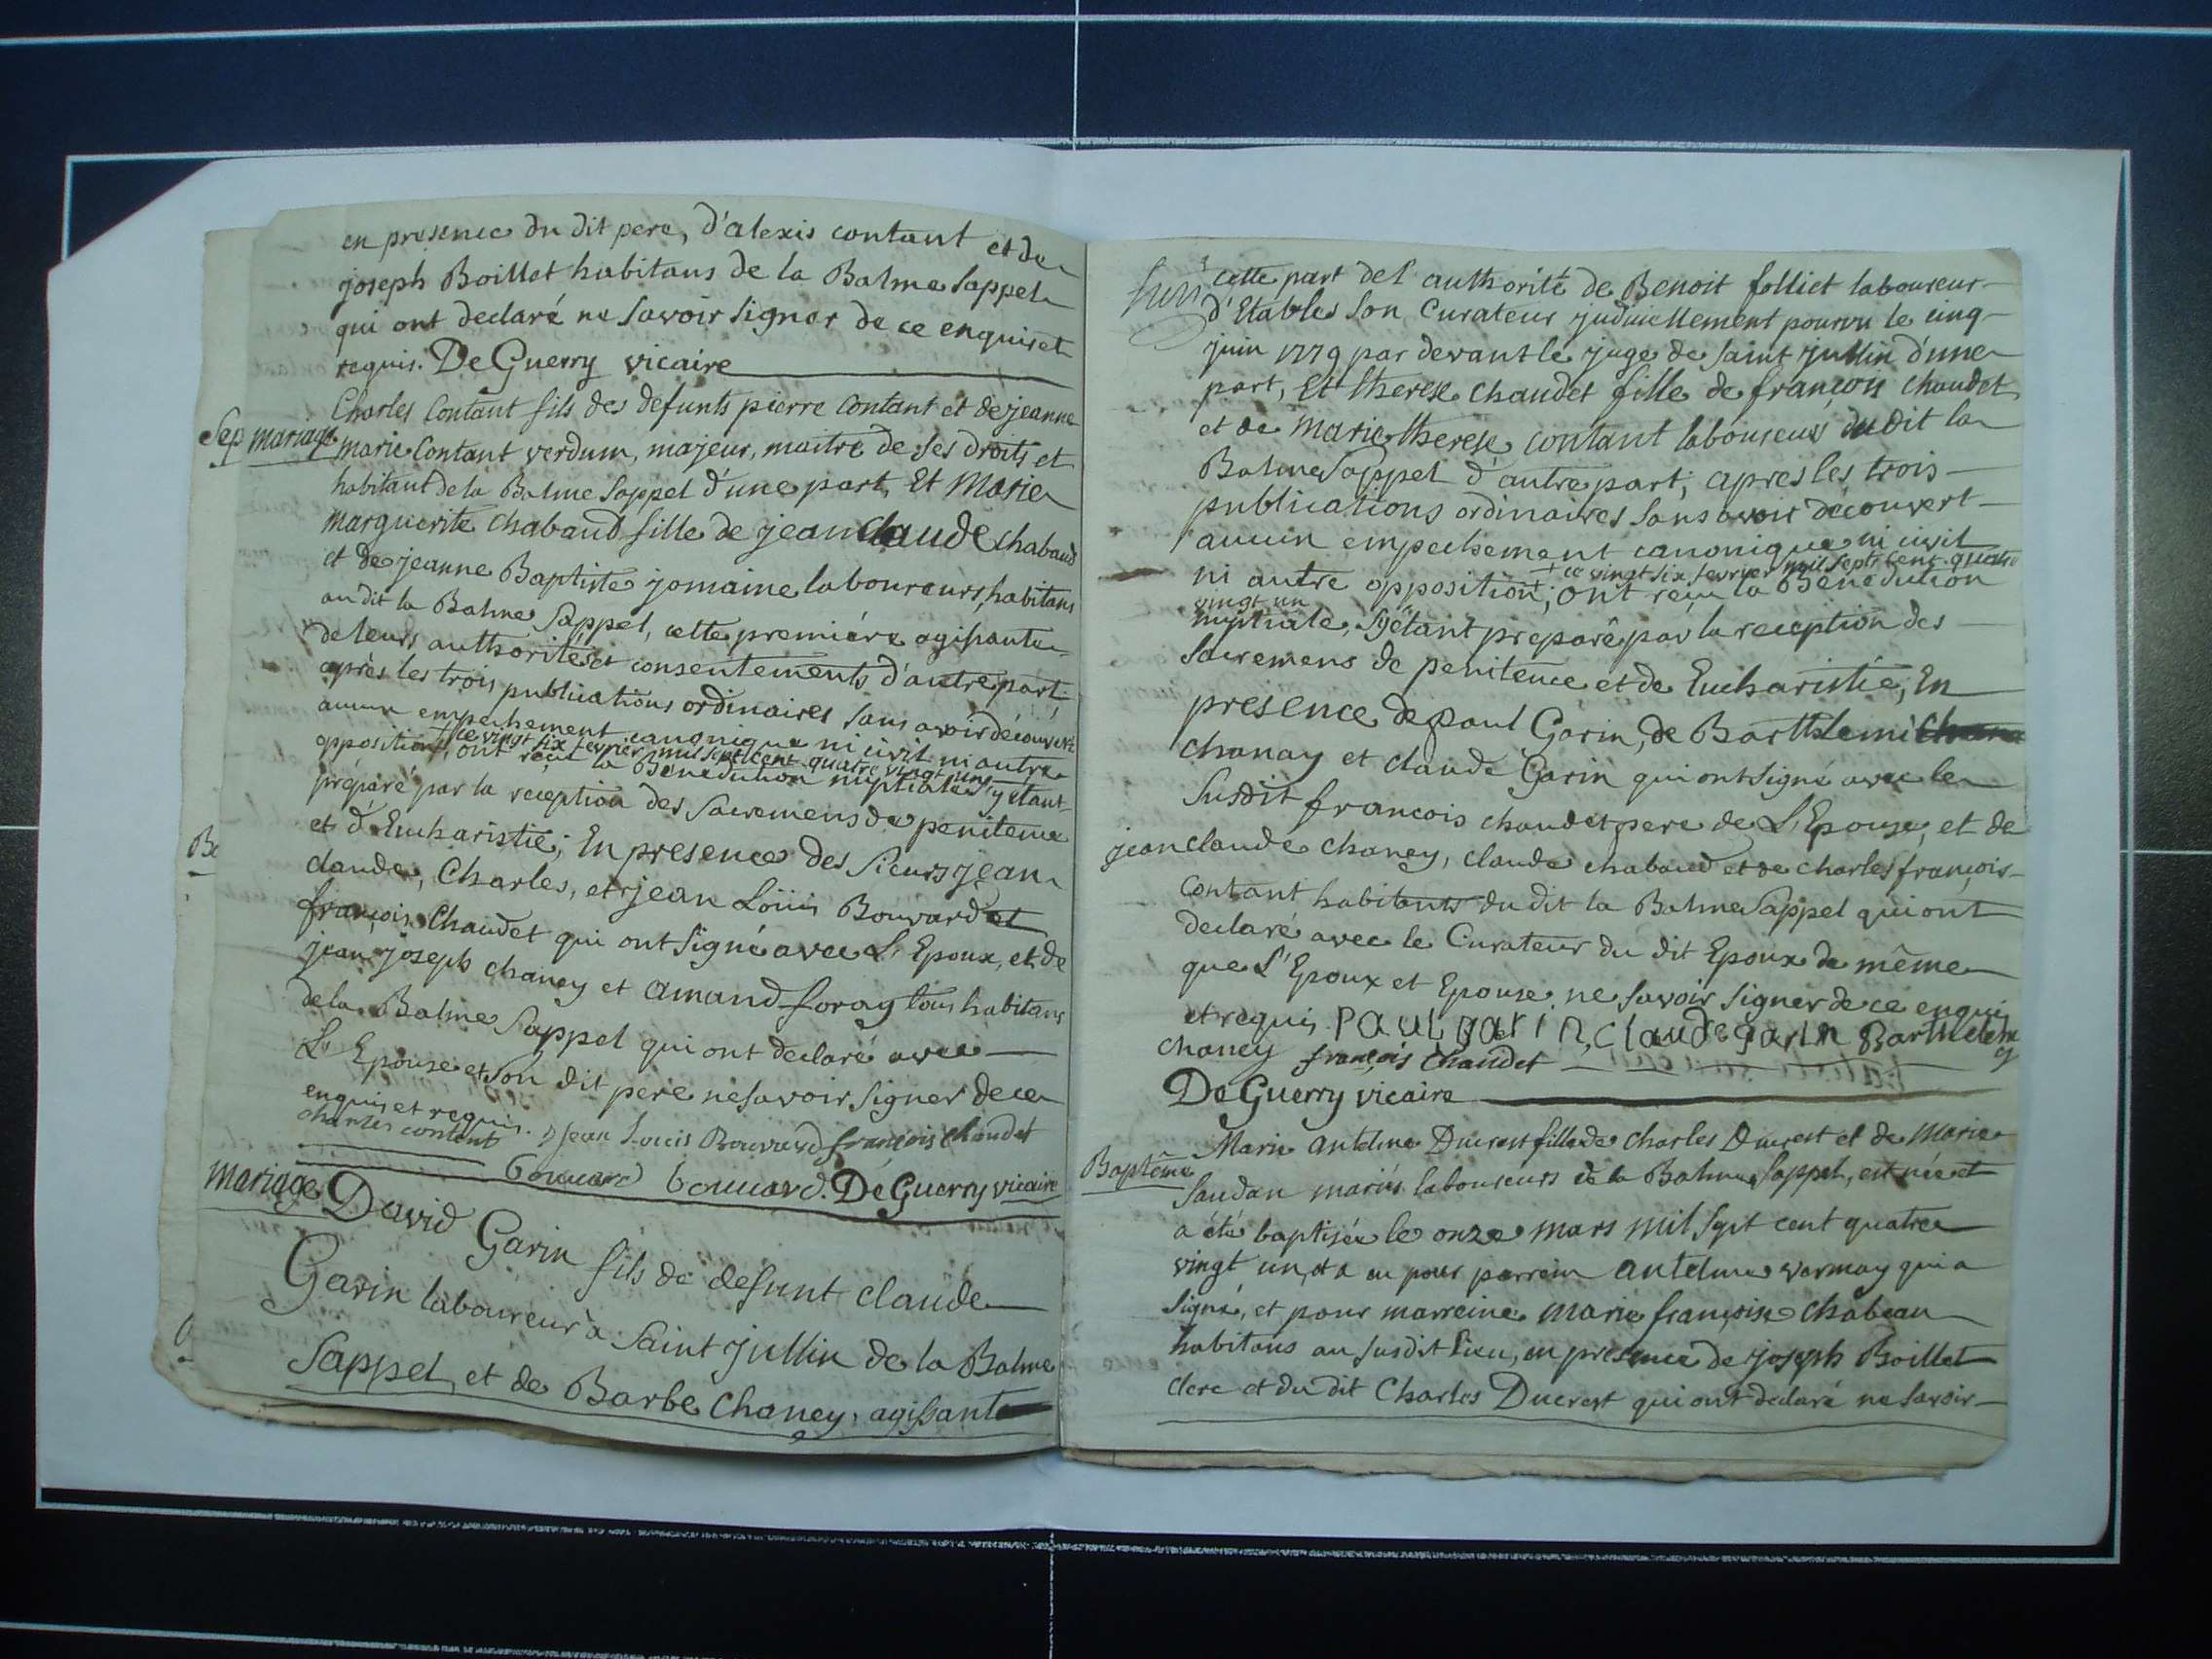 en presence du dit pere, d'alexis contant et de
joseph Boillet habitans de la Balme Sappel
qui ont declaré ne savoir signer de ce enquis et
requis. De Guerry vicaire
Charles Contant fils des defunts pierre Contant et de jeanne
Sep mariage marie Contant verdum, majeur, maitre de ses droits et
habitant de la Balme Sappel d'une part, Et Marie
Marguerite Chabaud fille de jean claude chabaud
et de jeanne Baptiste jomaine laboureurs, habitans
au dit la Balme Sappel, cette premiére agissante
de leurs authorités et consentements d'autre part;
après les trois publications ordinaires sans avoir découvert
aucun empechement canonique ni civil ni autre
+ ce vingt six fevrier mil sept cent quatre vingt un
opposition + ont reçu la Benediction nuptiale s'y etant
préparé par la reception des sacremens de penitence
et d'Eucharistie; En presence des sieurs jean
Be
claude, Charles, et jean Loüis Bouvard et
françois Chaudet qui ont signé avec L'Epoux, et de
jean joseph chaney et amand foray tous habitans
de la Balme Sappel qui ont declaré avec
L'Epouse et son dit pere ne savoir signer de ce
enquis et requis. jean Louis Bouvard françois chaudet
charles contant
bouvard bouvard. De Guerry vicaire
Mariage David Garin fils de defunt claude
Garin laboureur à Saint jullin de la Balme
Sappel et de Barbe Chaney, agissant
cette part de l'authorité de Benoit folliet laboureur
d'Etables son Curateur judiciellement pourvu le cinq
juin 1779 par devant le juge de saint jullin d'une
part, Et therese chaudet fille de françois chaudet
et de Marie therese contant laboureurs du dit la
Balme Sappel d'autre part; apres les trois
publications ordinaires sans avoir découvert
aucun empechement canonique ni civil
+ ce vingt six fevrier mil sept cent quatre
ni autre opposition; + ont reçu la Benediction
vingt un
nuptiale, s'y étant preparé par la reception des
sacremens de penitence et de Eucharistie; En
presence de paul Garin, de Barthlemi
chanay et claude Garin qui ont signé avec le
susdit francois chaudet pere de L'Epouse, et de
jean claude chaney, claude chabaud et de charles françois
contant habitants du dit la Balme Sappel qui ont
declaré avec le Curateur du dit Epoux de même
que L'Epoux et Epouse ne savoir signer de ce enquis
et requis paul garin, claude garin Barthelemy
chaney françois chaudet
De Guerry vicaire
Marie antelme Ducrest fille de charles Ducrest et de Marie
Baptême
Saudan mariés laboureurs de la Balme Sappel, est née et
a été baptisée le onze mars mil sept cent quatre
vingt un, et a eu pour parrein antelme vermay qui a
signé, et pour marreine marie françoise chabeau
habitans au susdit Lieu, en presence de joseph Boillet
clerc et du dit Charles Ducrest qui ont declaré ne savoir